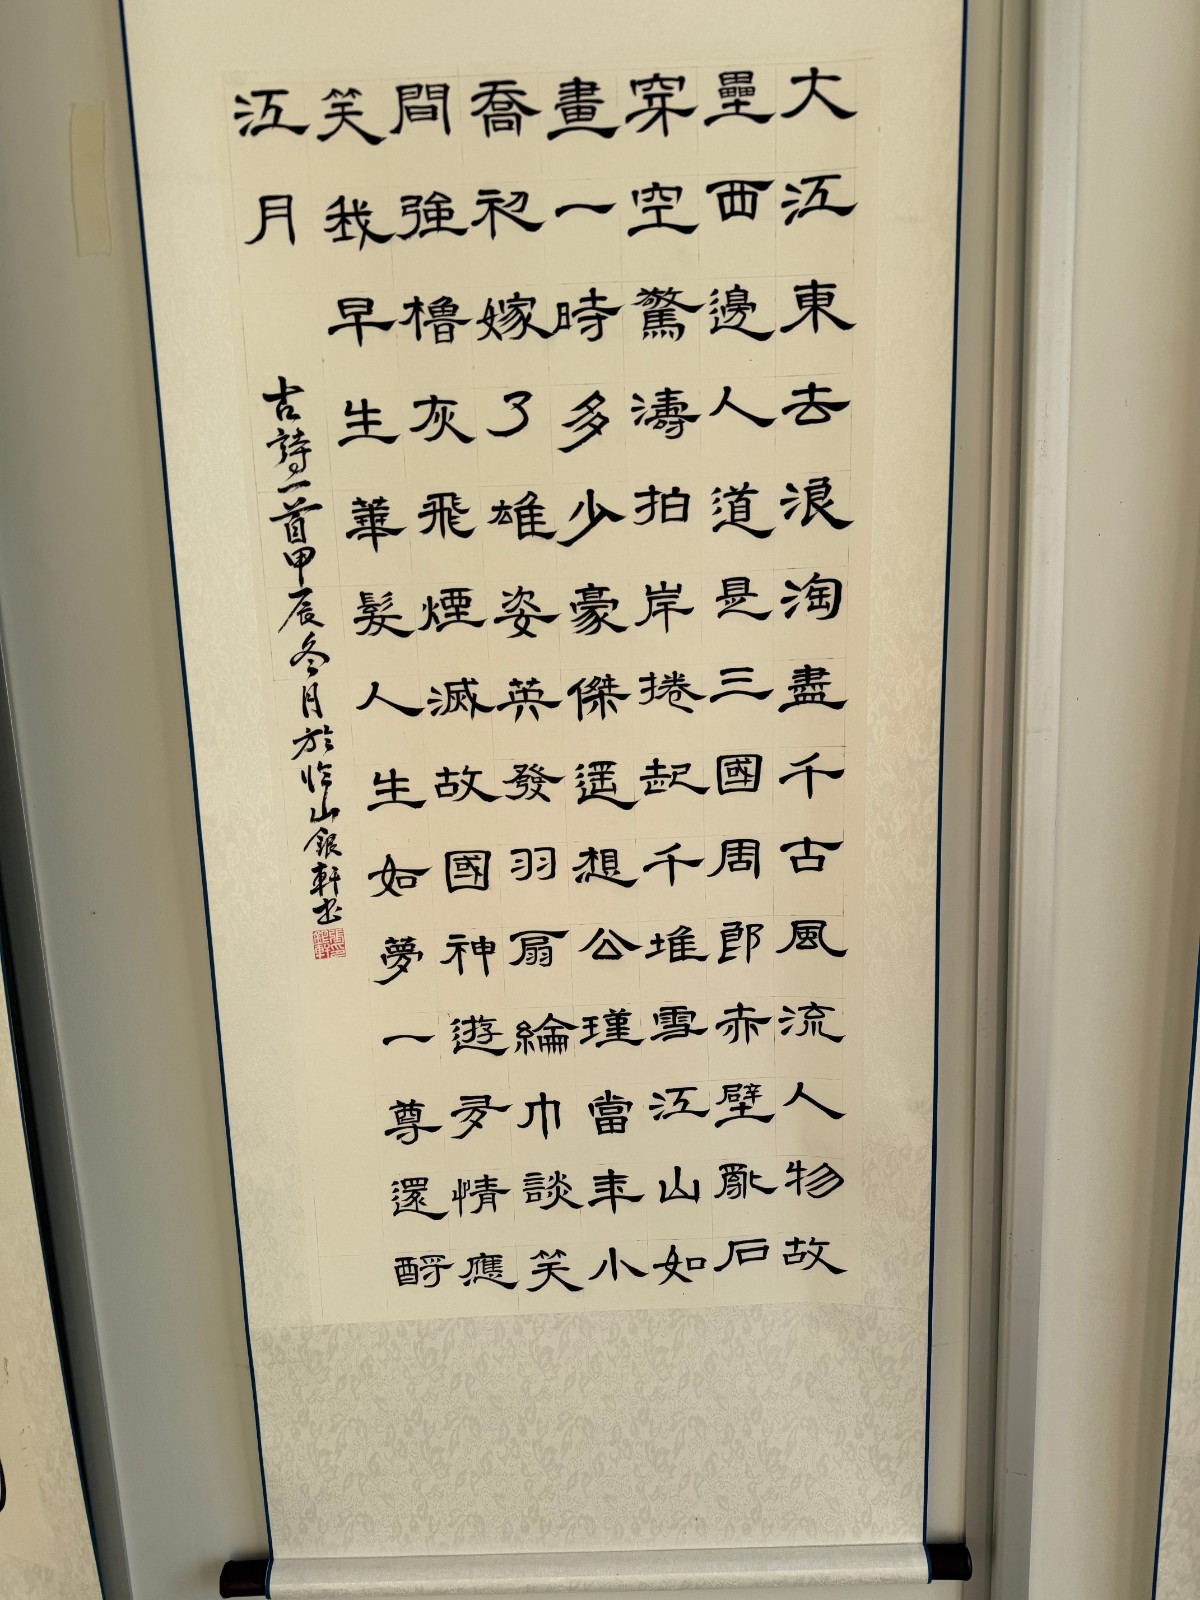 大江東去浪淘盡千古風流人物故
壘西邊人道是三國周郎赤壁亂石
穿空驚濤拍岸捲起千堆雪江山如
畫一時多少豪傑遥想公瑾當年小
喬初嫁了雄姿英發羽扇綸巾談笑
間強櫓灰飛煙滅故國神遊多情應
笑我早生華髮人生如夢一尊還酹
江月
古詩一首甲辰冬月於山銀軒书